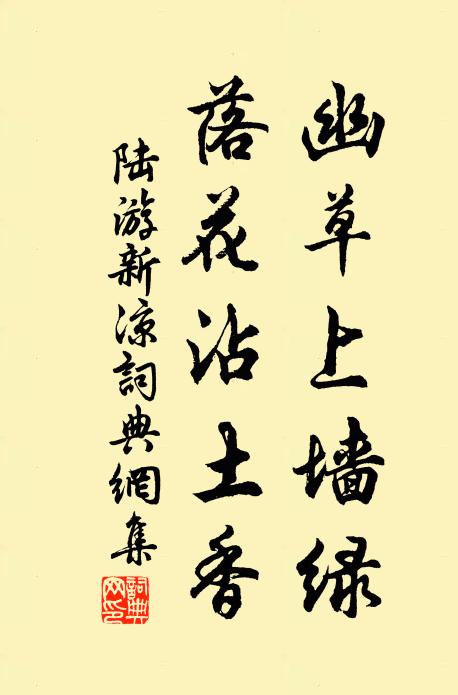 幽草上墙绿
落花沾土香
陆游新凉詞典網集
詞典网印